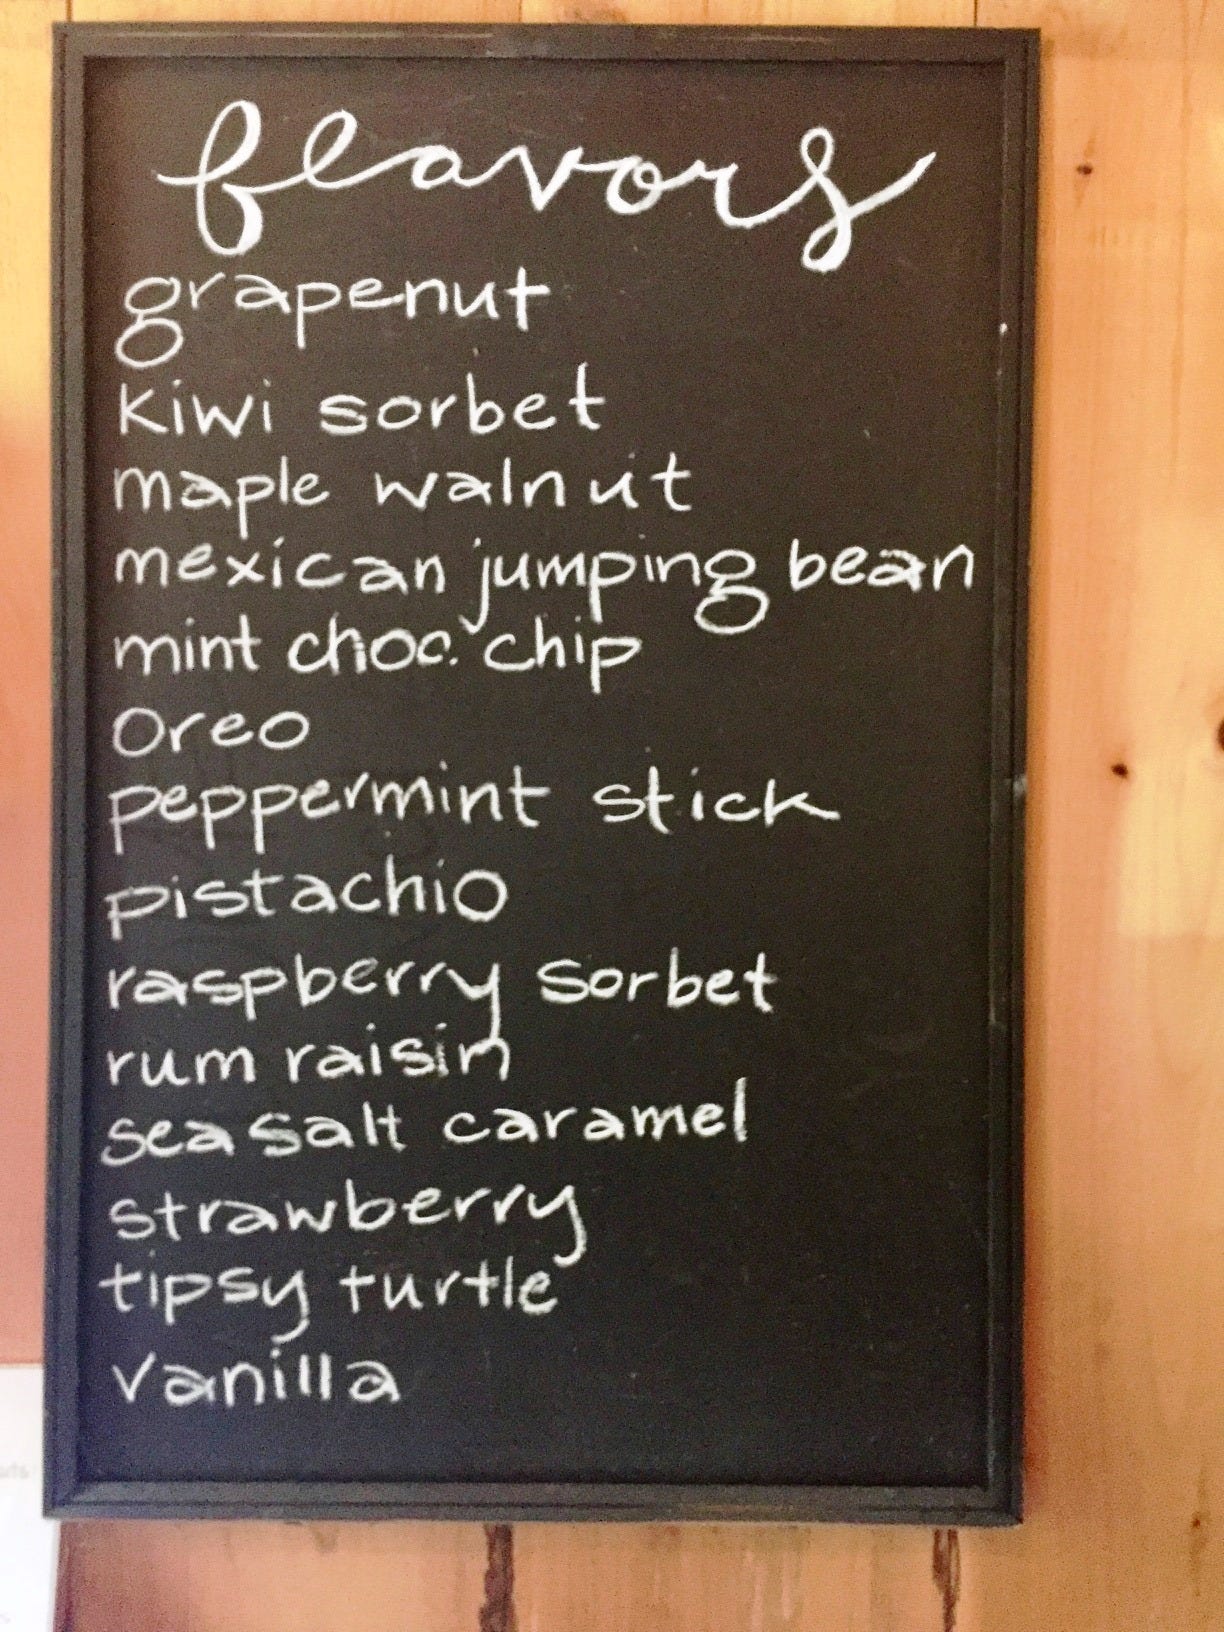 flavors
grapenut
kiwi sorbet
maple walnut
mexican jumping bean
mint choc. chip
oreo
peppermint stick
pistachio
raspberry sorbet
rum raisin
sea salt caramel
strawberry
tipsy turtle
vanilla